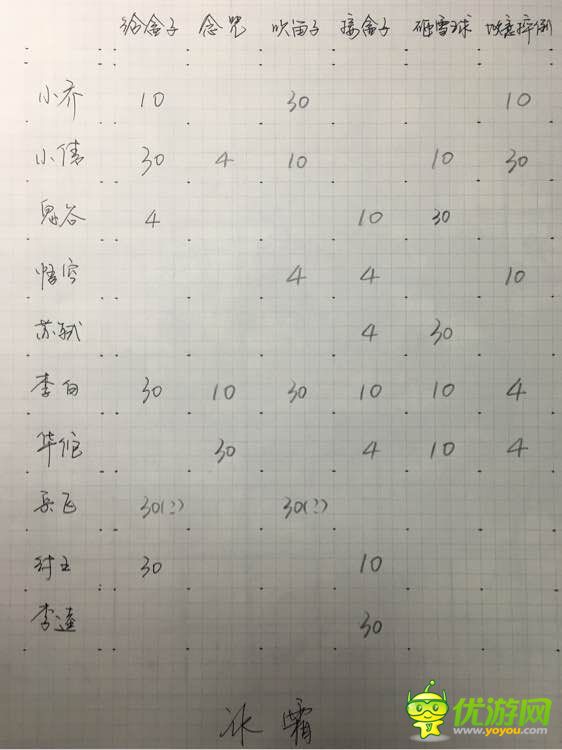 给盒子 念咒 吹笛子 接盒子 砸雪球 摔倒
小乔 10 30 10
小倩 30 4 10 10 30
鬼谷 4 10 30
悟空 4 4 10
苏轼 4 30
李白 30 10 30 10 10 4
华佗 30 4 10 4
岳飞 30(?) 30(?)
纣王 30 10
李逵 30
冰霜
优游网
www.yoyou.com